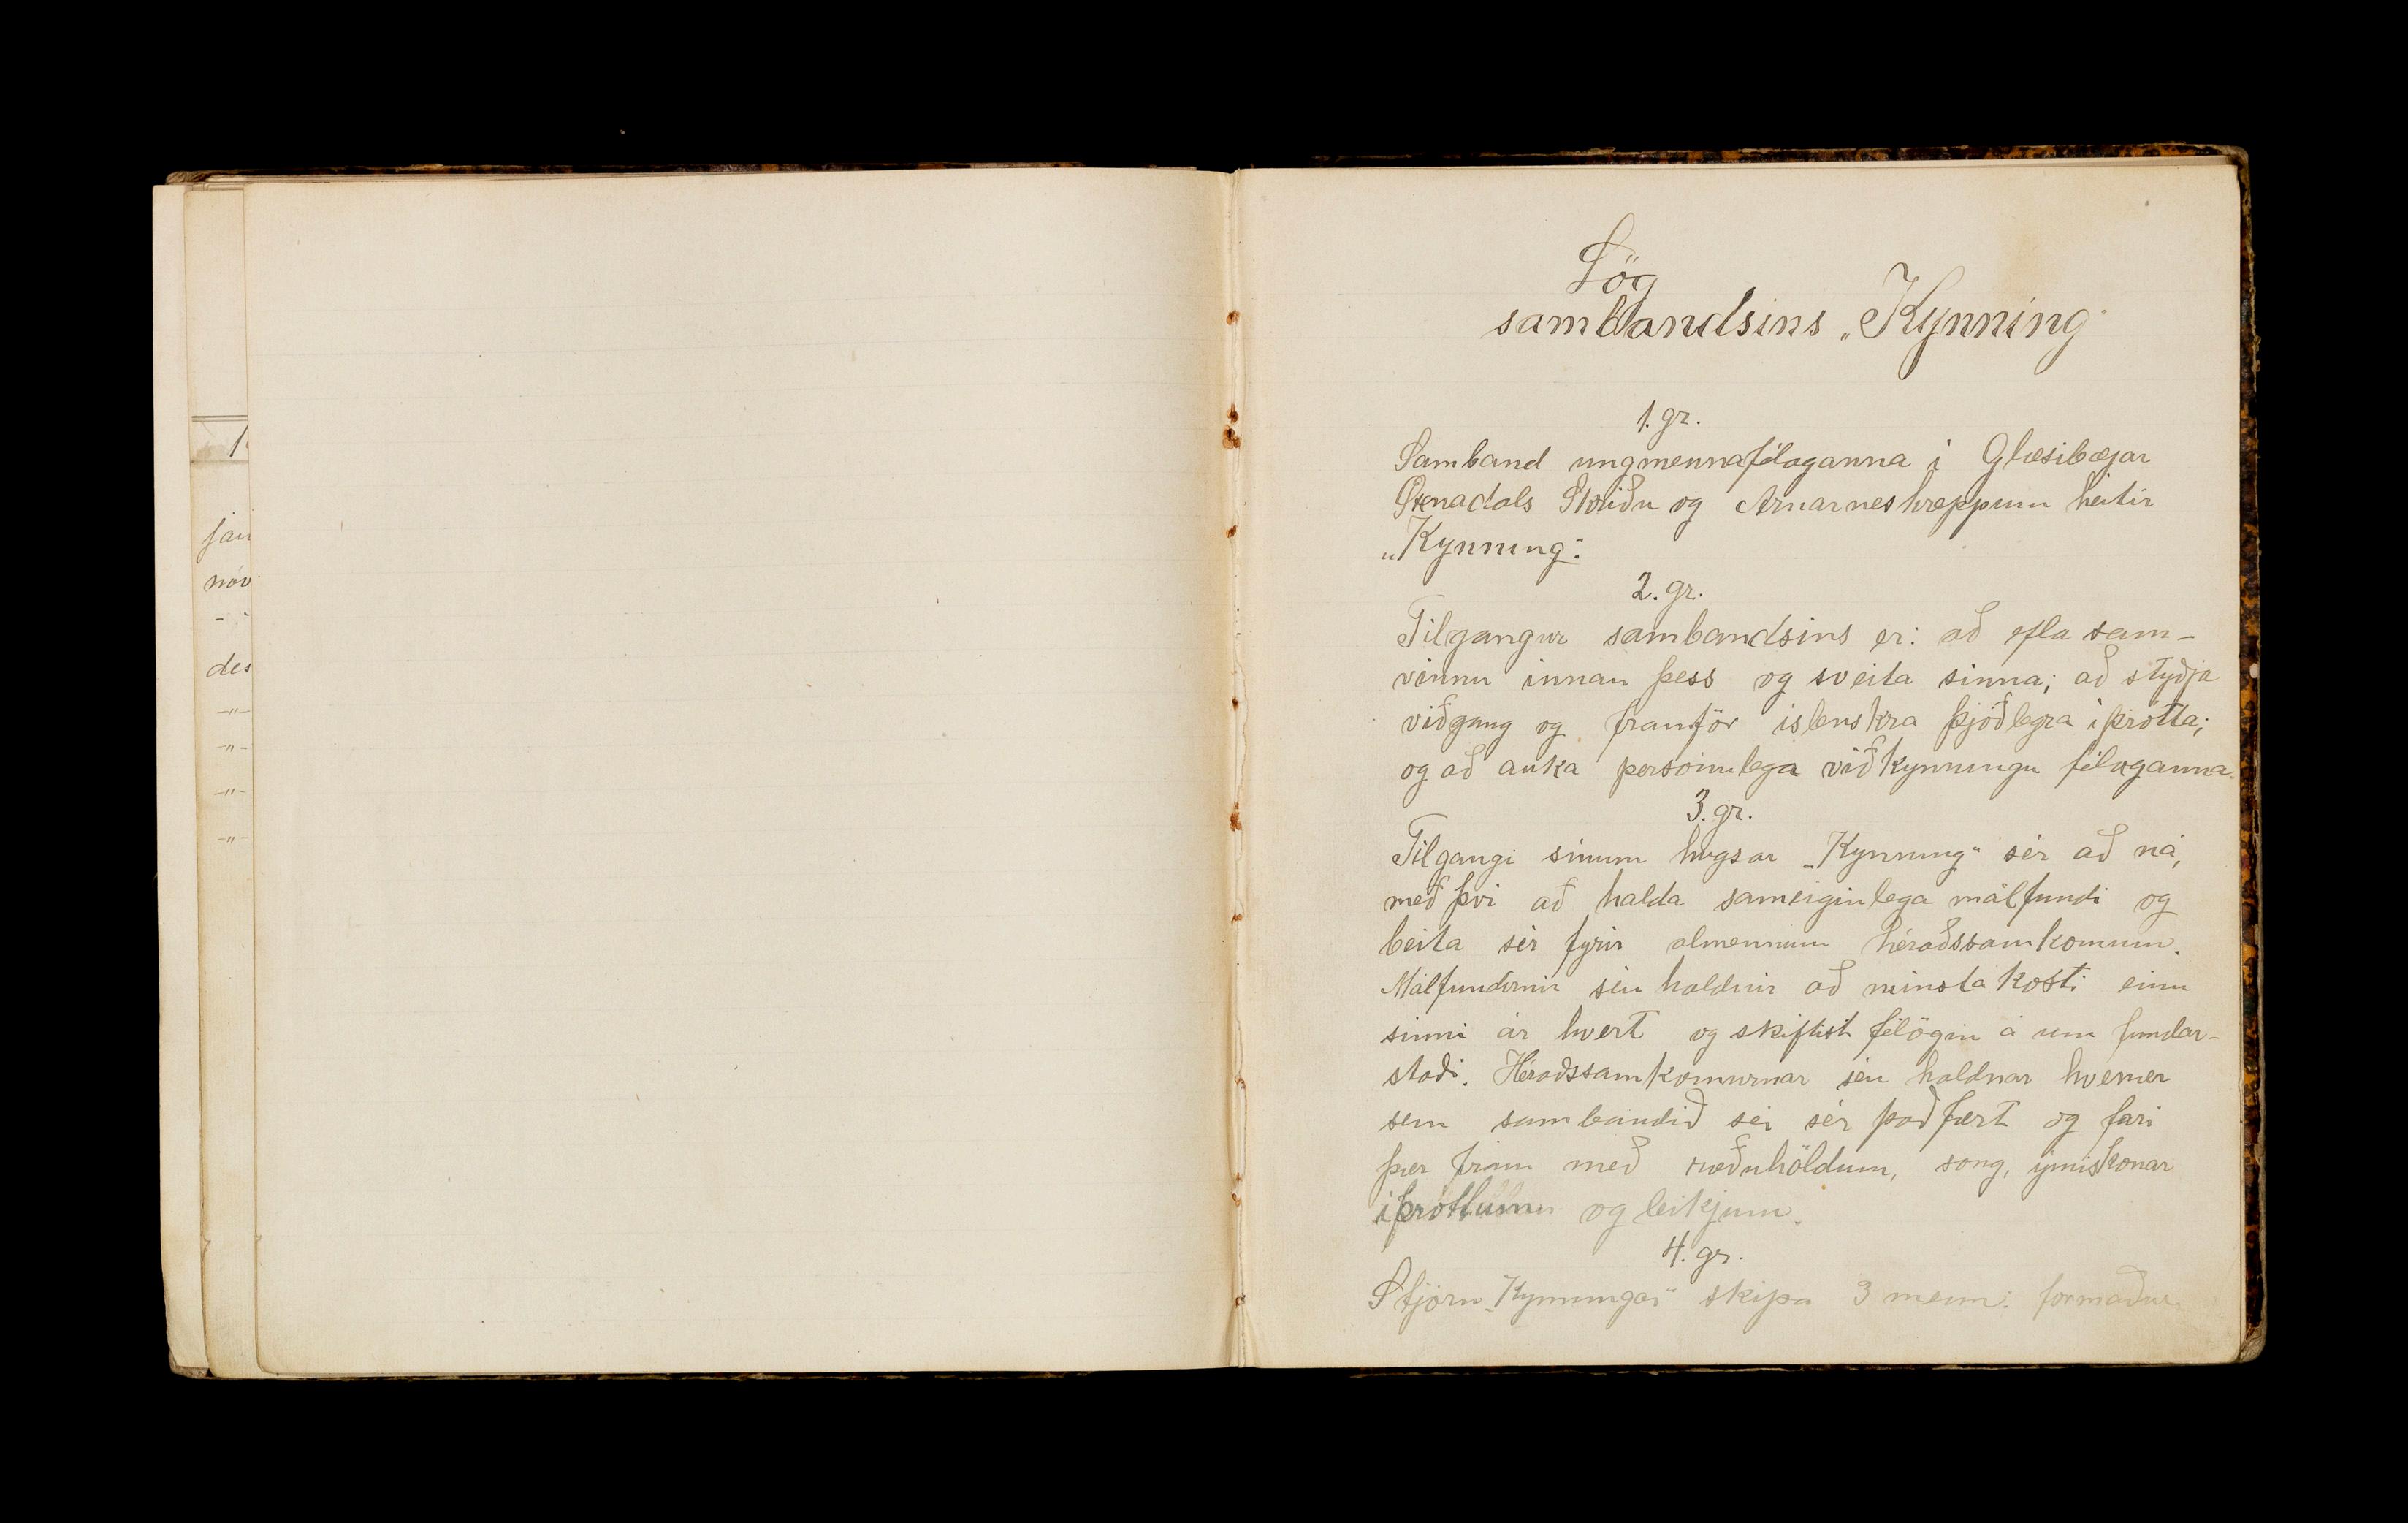 1
jan
nóv
-
des
-"-
-"-
-"-
-"-
Lög
sambandsins „Kynning"
1. gr.
Samband ungmennafélaganna í Glæsibæjar
Öxnadals Skriðu og Arnarneshreppum heitir
„Kynning".
2. gr.
Tilgangur sambandsins er: að efla sam-
vinnu innan þess og sveita sinna; að styðja
viðgang og framför íslenskra þjóðlegra íþrótta;
og að auka persónulega viðkynningu félaganna.
3. gr.
Tilgangi sínum hugsar „Kynning" sér að ná,
með því að halda sameiginlega málfundi og
beita sér fyrir almennum héraðssamkomum.
Málfundirnir séu haldnir að minsta kosti einu
sinni ár hvert og skiftist félögin á um fundar-
staði. Héraðssamkomurnar séu haldnar hvenær
sem sambandið sér sér það fært og fari
þær fram með ræðuhöldum, söng, ýmiskonar
íþróttum og leikjum.
4. gr.
Stjórn „Kynningar" skipa 3 menn: formaður,